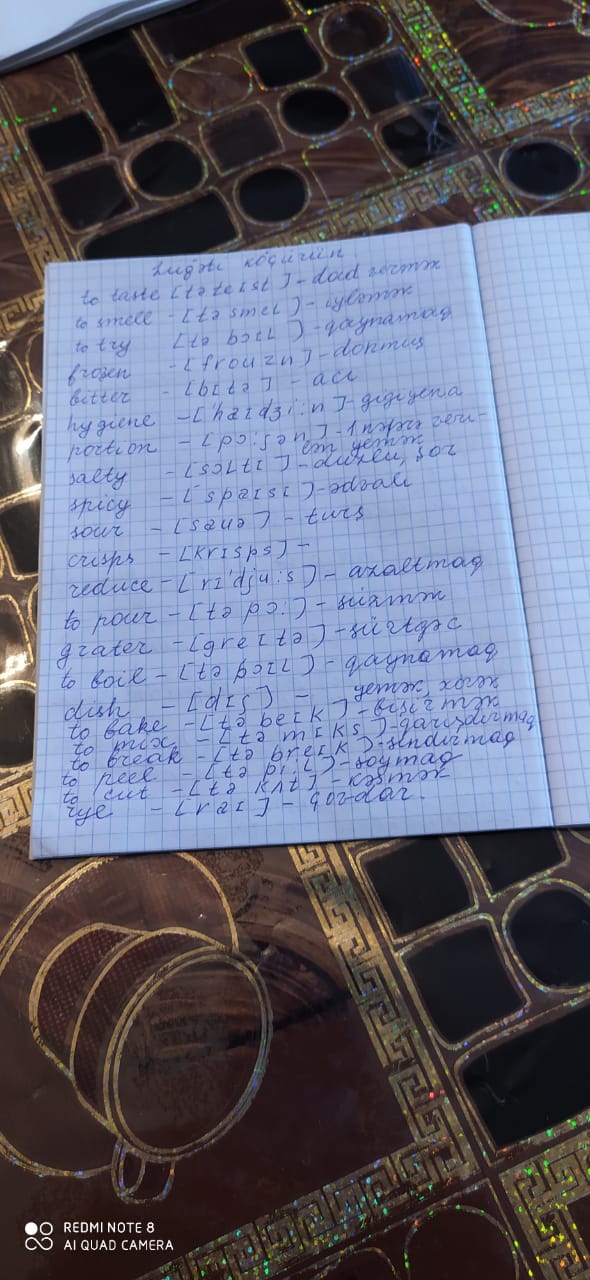 Lüğəti köçürün
to taste [tə teıst] - dad vermək
to smell - [tə smel] - iyləmək
to try [tə bɔıl] - qaynamaq
frozen - [frouzn] - donmuş
bitter - [bıtə] - acı
hygiene - [haıdʒi:n] - gigiyena
portion - [pɔ:ʃən] - 1 nəfərə veri-
lən yemək
salty - [sɔltı] - duzlu, şor
spicy - [spaısı] - ədvalı
sour - [sauə] - turş
crisps - [krısps] -
reduce - [rı'dju:s] - azaltmaq
to pour - [tə pɔ:] - süzmək
grater - [greıtə] - sürtgəc
to boil - [tə bɔıl] - qaynamaq
dish - [dıʃ] - yemək, xörək
to bake - [tə beık] - bişirmək
to mix - [tə mıks] - qarışdırmaq
to break - [tə breık] - sındırmaq
to peel - [tə pi:l] - soymaq
to cut - [tə kʌt] - kəsmək
rye - [raı] - çovdar.
REDMI NOTE 8
AI QUAD CAMERA